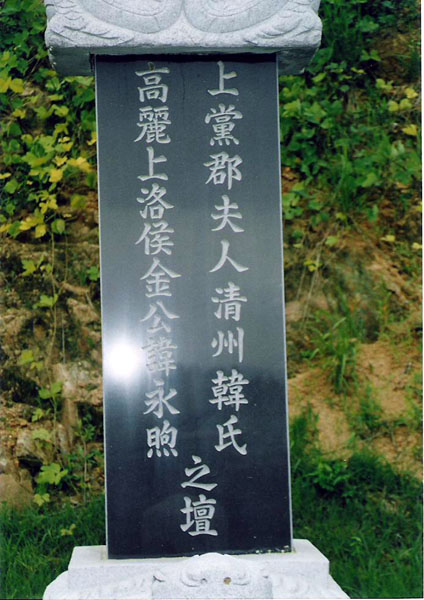 上黨郡夫人清州韓氏
高麗上洛侯金公諱永煦
之壇